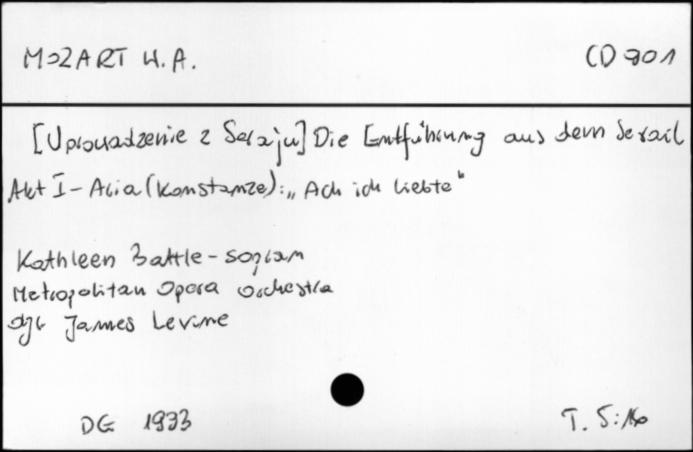 MOZART W.A. CD 901
[Uprowadzenie z Seraju] Die Entführung aus dem Serail
Akt I - Aria (Konstanze): „Ach ich liebte"
Kathleen Battle - sopran
Metropolitan Opera Orchestra
dyr James Levine
DG 1993 T. 5: